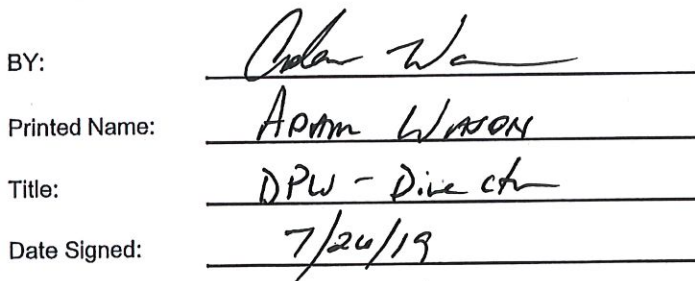 BY: Adam Wa
Printed Name: ADAM WASON
Title: DPW - Director
Date Signed: 7/26/19